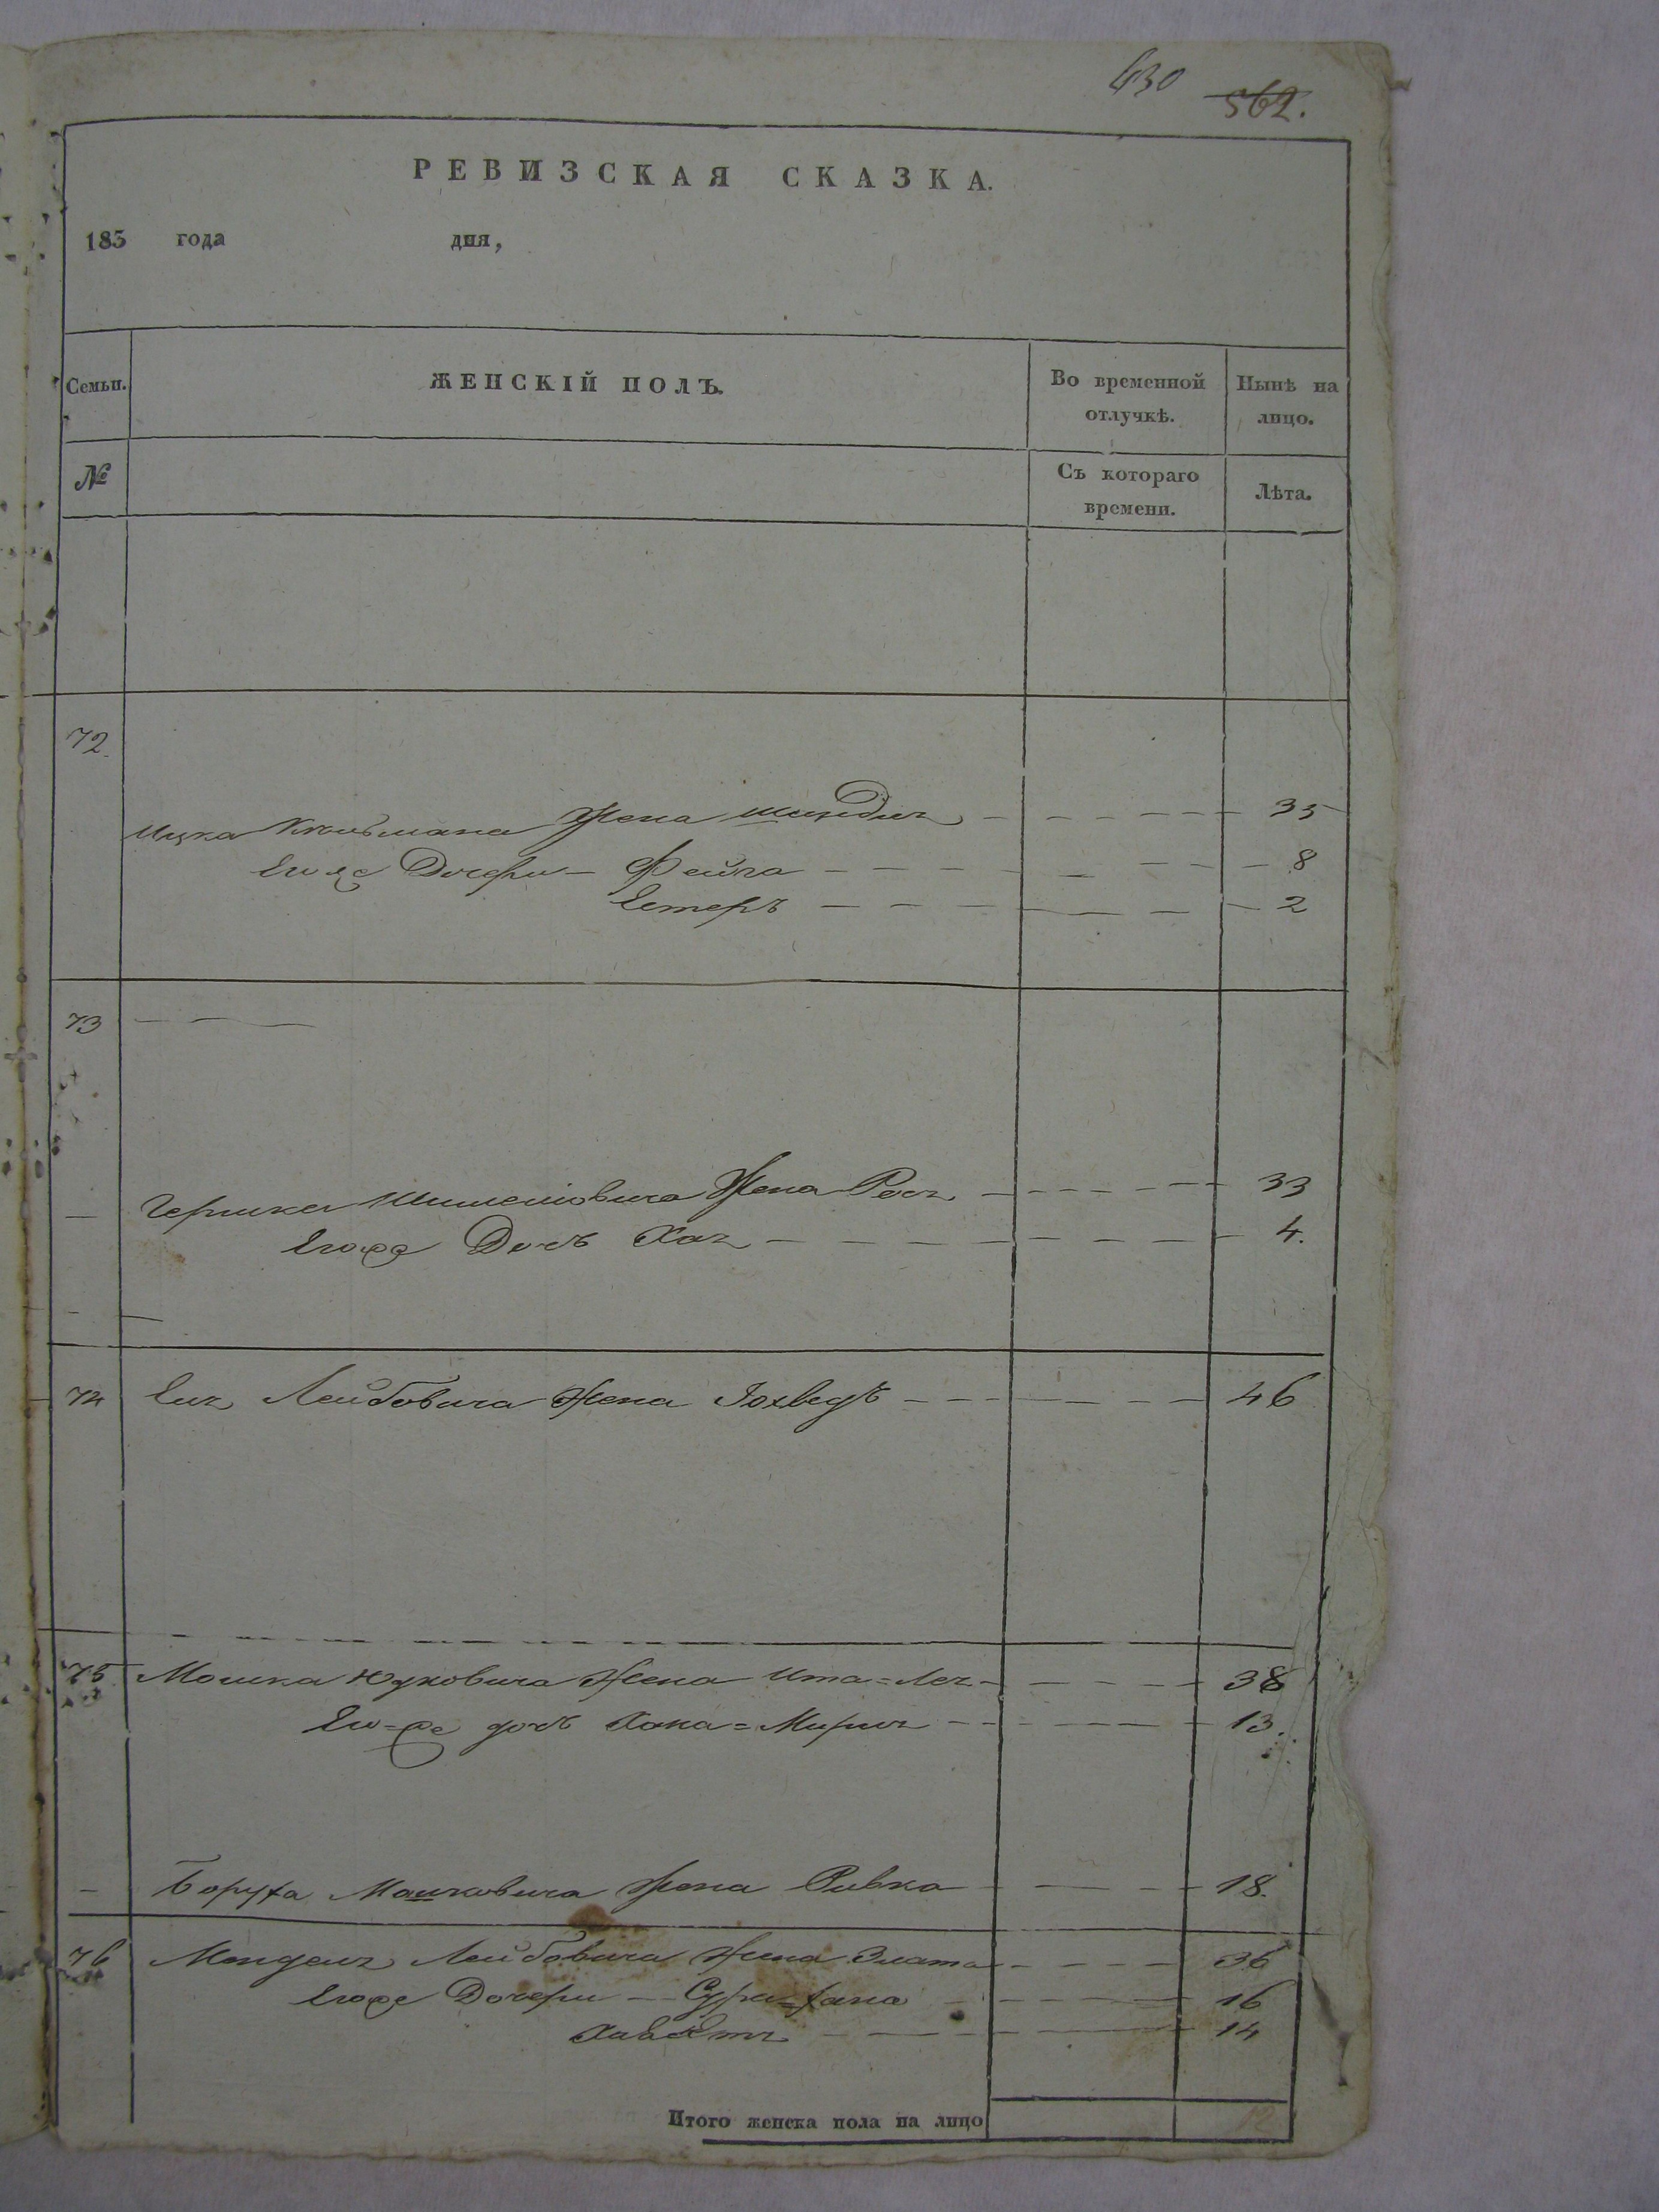 430 562.
РЕВИЗСКАЯ СКАЗКА.
183 года дня,
Семьи. ЖЕНСКІЙ ПОЛЪ. Во временной отлучкѣ. Нынѣ на лицо.
№ Съ котораго времени. Лѣта.
72
Ицка жена 35
Его же Дочери Фейга 8
Естеръ 2
73
Гершка жена Рося 33
Егоже Дочь Хая 4.
74 Лейбовича жена Іохведъ 46
75 Мошка Юдковича жена Ита=Лея 38
Его=же дочь Хана=Мирля 13.
Боруха Мошковича жена Ривка 18.
76 Менделя Лейбовича жена Злата 36
Егоже Дочери Сура=Хана 16
14
Итого женска пола на лицо 12